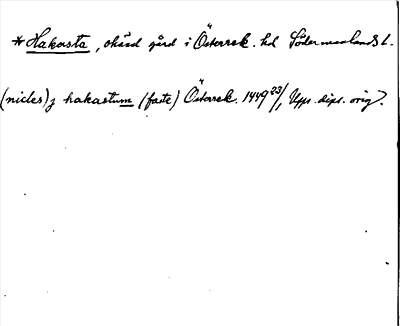 * Hakasta, okänd gård i Österrek. hd Södermanlands l.
(nicles) j hakastum (faste) Österrek. 1449 23/1, Upps. dipl. orig.